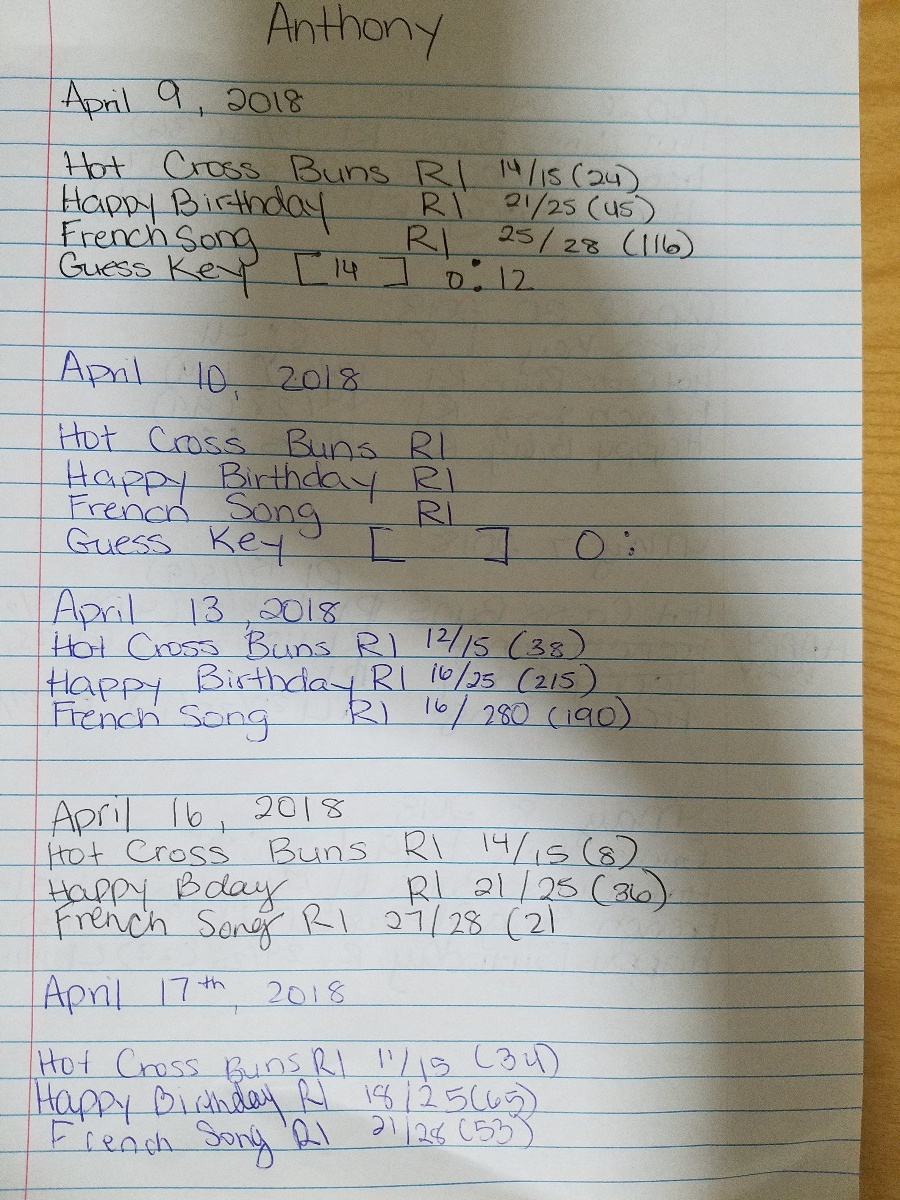 Anthony
April 9, 2018
Hot Cross Buns R1 14/15 (24)
Happy Birthday R1 21/25 (45)
French Song R1 25/28 (116)
Guess Key [14] 0:12
April 10, 2018
Hot Cross Buns R1
Happy Birthday R1
French Song R1
Guess Key [ ] 0:
April 13, 2018
Hot Cross Buns R1 12/15 (38)
Happy Birthday R1 16/25 (215)
French Song R1 16/280 (190)
April 16, 2018
Hot Cross Buns R1 14/15 (8)
Happy Bday R1 21/25 (36)
French Song R1 27/28 (21
April 17th, 2018
Hot Cross Buns R1 11/15 (34)
Happy Birthday R1 18/25 (65)
French Song R1 21/28 (53)